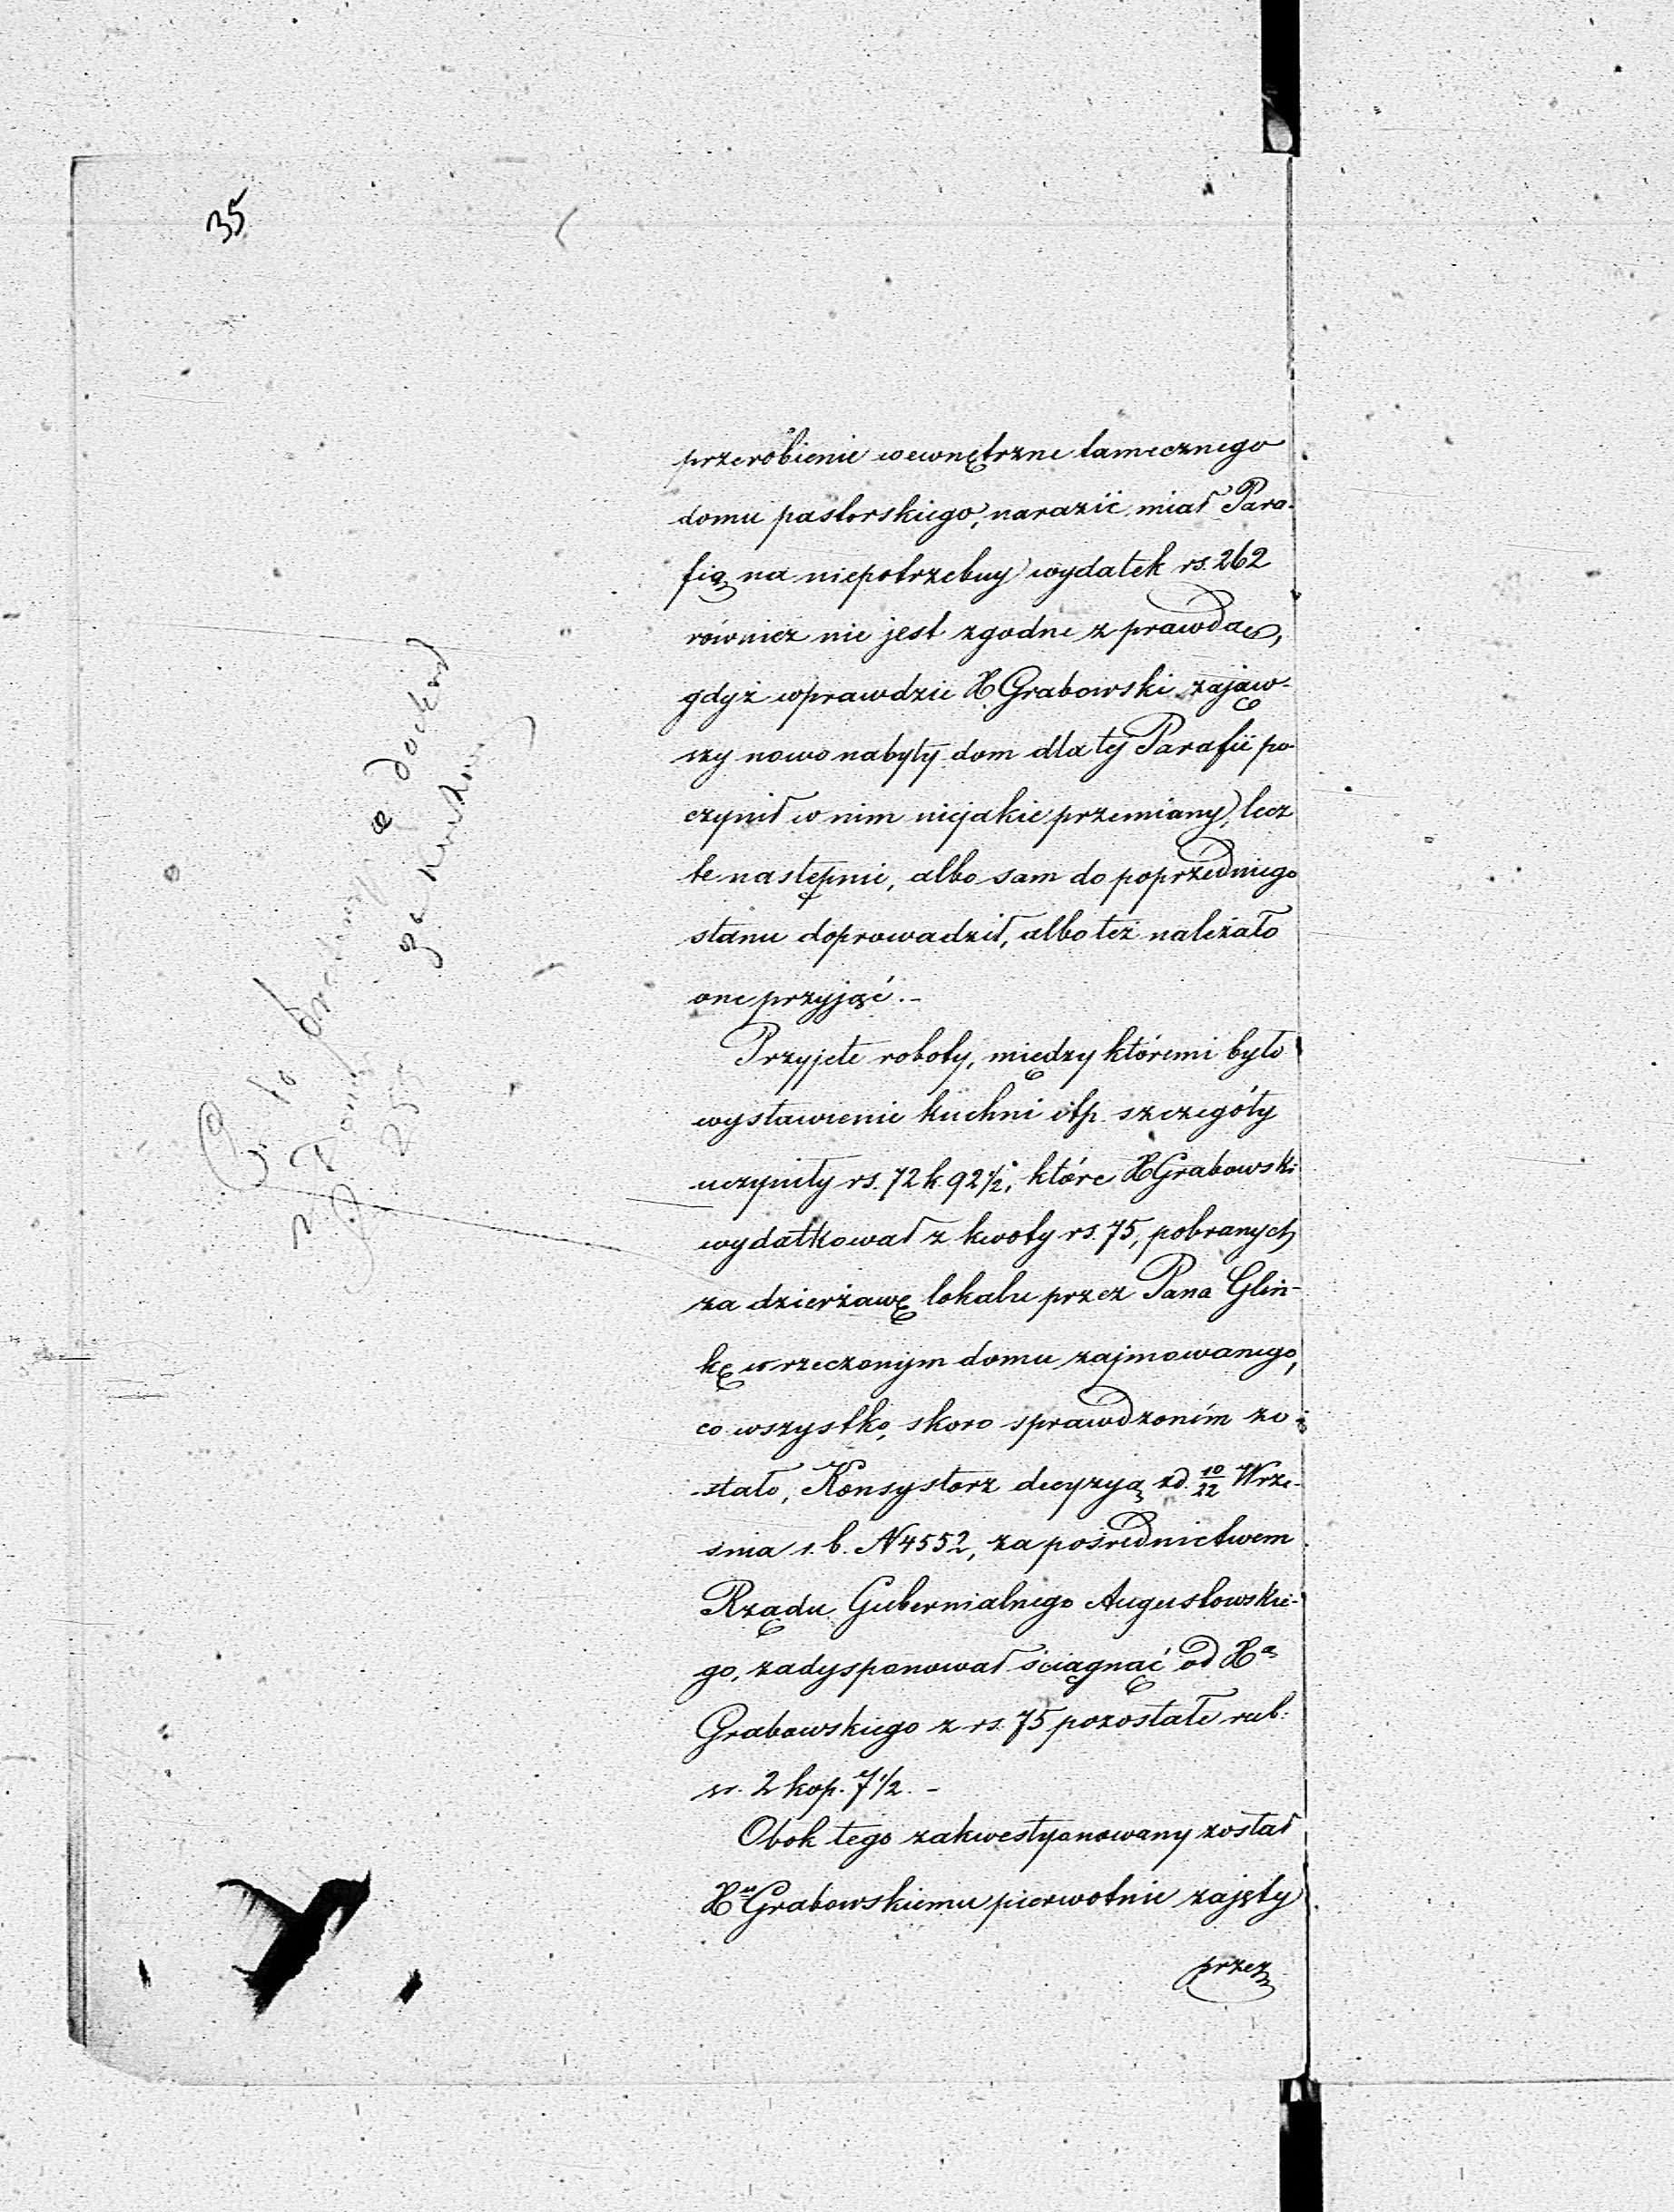 35
przerobienie wewnętrzne tamecznego
domu pastorskiego, narazić miał Para-
fią na niepotrzebny wydatek rs. 262
również nie jest zgodne z prawdą,
gdyż wprawdzie X Grabowski zająw-
szy nowo nabyty dom dla tej Parafii po-
czynił w nim niejakie przemiany, lecz
te następnie, albo sam do poprzedniego
stanu doprowadził, albo też należało
one przyjąć. -
Przyjęte roboty, między któremi było
wystawienie kuchni itp. szczegóły
uczyniły rs. 72 k. 92 1/2, które X Grabowski
wydatkował z kwoty rs. 75, pobranych
za dzierżawę lokalu przez Pana Glin-
kę w rzeczonym domu zajmowanego,
co wszystko, skoro sprawdzoném zo-
stało, Konsystorz decyzyą z d. 10/22 Wrze-
śnia r. b. N 4552, za pośrednictwem
Rządu Gubernialnego Augustowskie-
go, zadysponował ściągnąć od Xa
Grabowskiego z rs. 75 pozostałe rub.
sr. 2 kop. 7 1/2. -
Obok tego zakwestyonowany został
Xu Grabowskiemu pierwotnie zajęty
przez